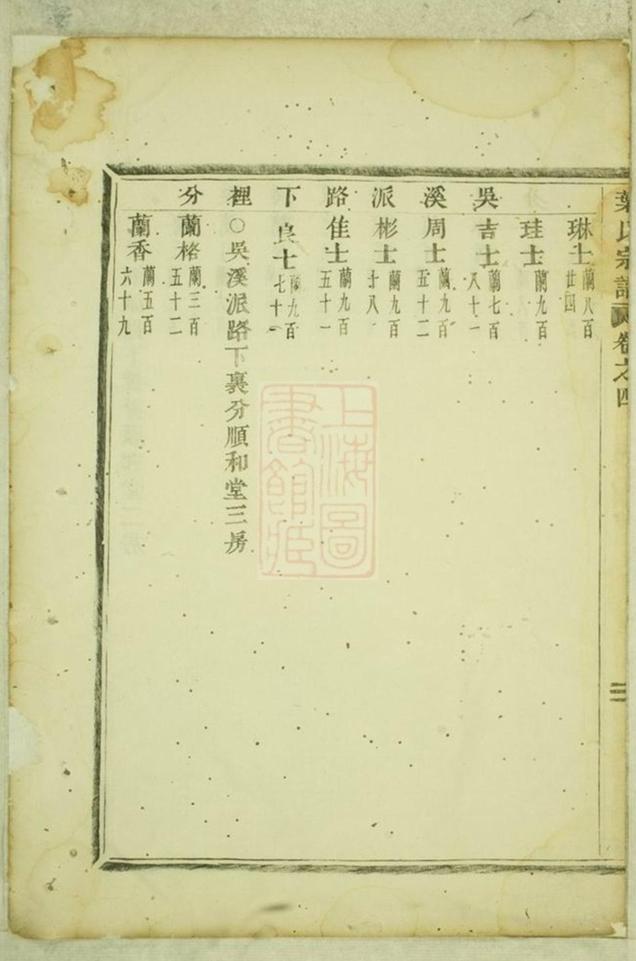 葉氏宗譜
卷之四
三
吳溪派路下裡分
琳士 蘭八百廿四
珪士 蘭九百
吉士 蘭七百八十一
周士 蘭九百五十二
彬士 蘭九百八
佳士 蘭九百五十一
良士 蘭九百七十一
○吳溪派路下裏分順和堂三房
蘭格 蘭三百五十二
蘭香 蘭五百六十九
上海圖書館藏